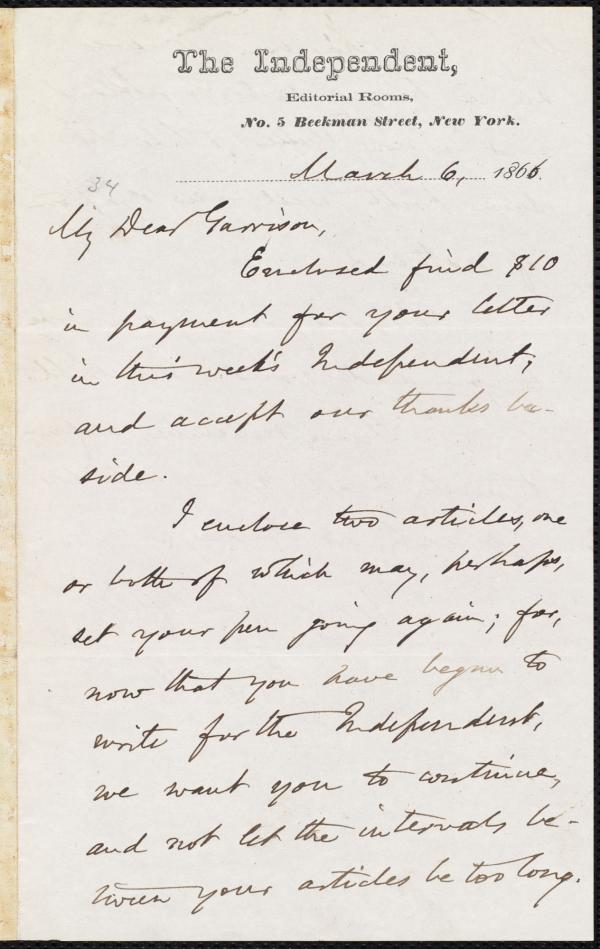 The Independent,
Editorial Rooms,
No. 5 Beekman Street, New York.
March 6, 1866.
34
My Dear Garrison,
Enclosed find $10
in payment for your letter
in this week's Independent,
and accept our thanks be-
side.
I enclose two articles, one
or both of which may, perhaps,
set your pen going again; for,
now that you have begun to
write for the Independent,
we want you to continue,
and not let the intervals be-
tween your articles be too long.